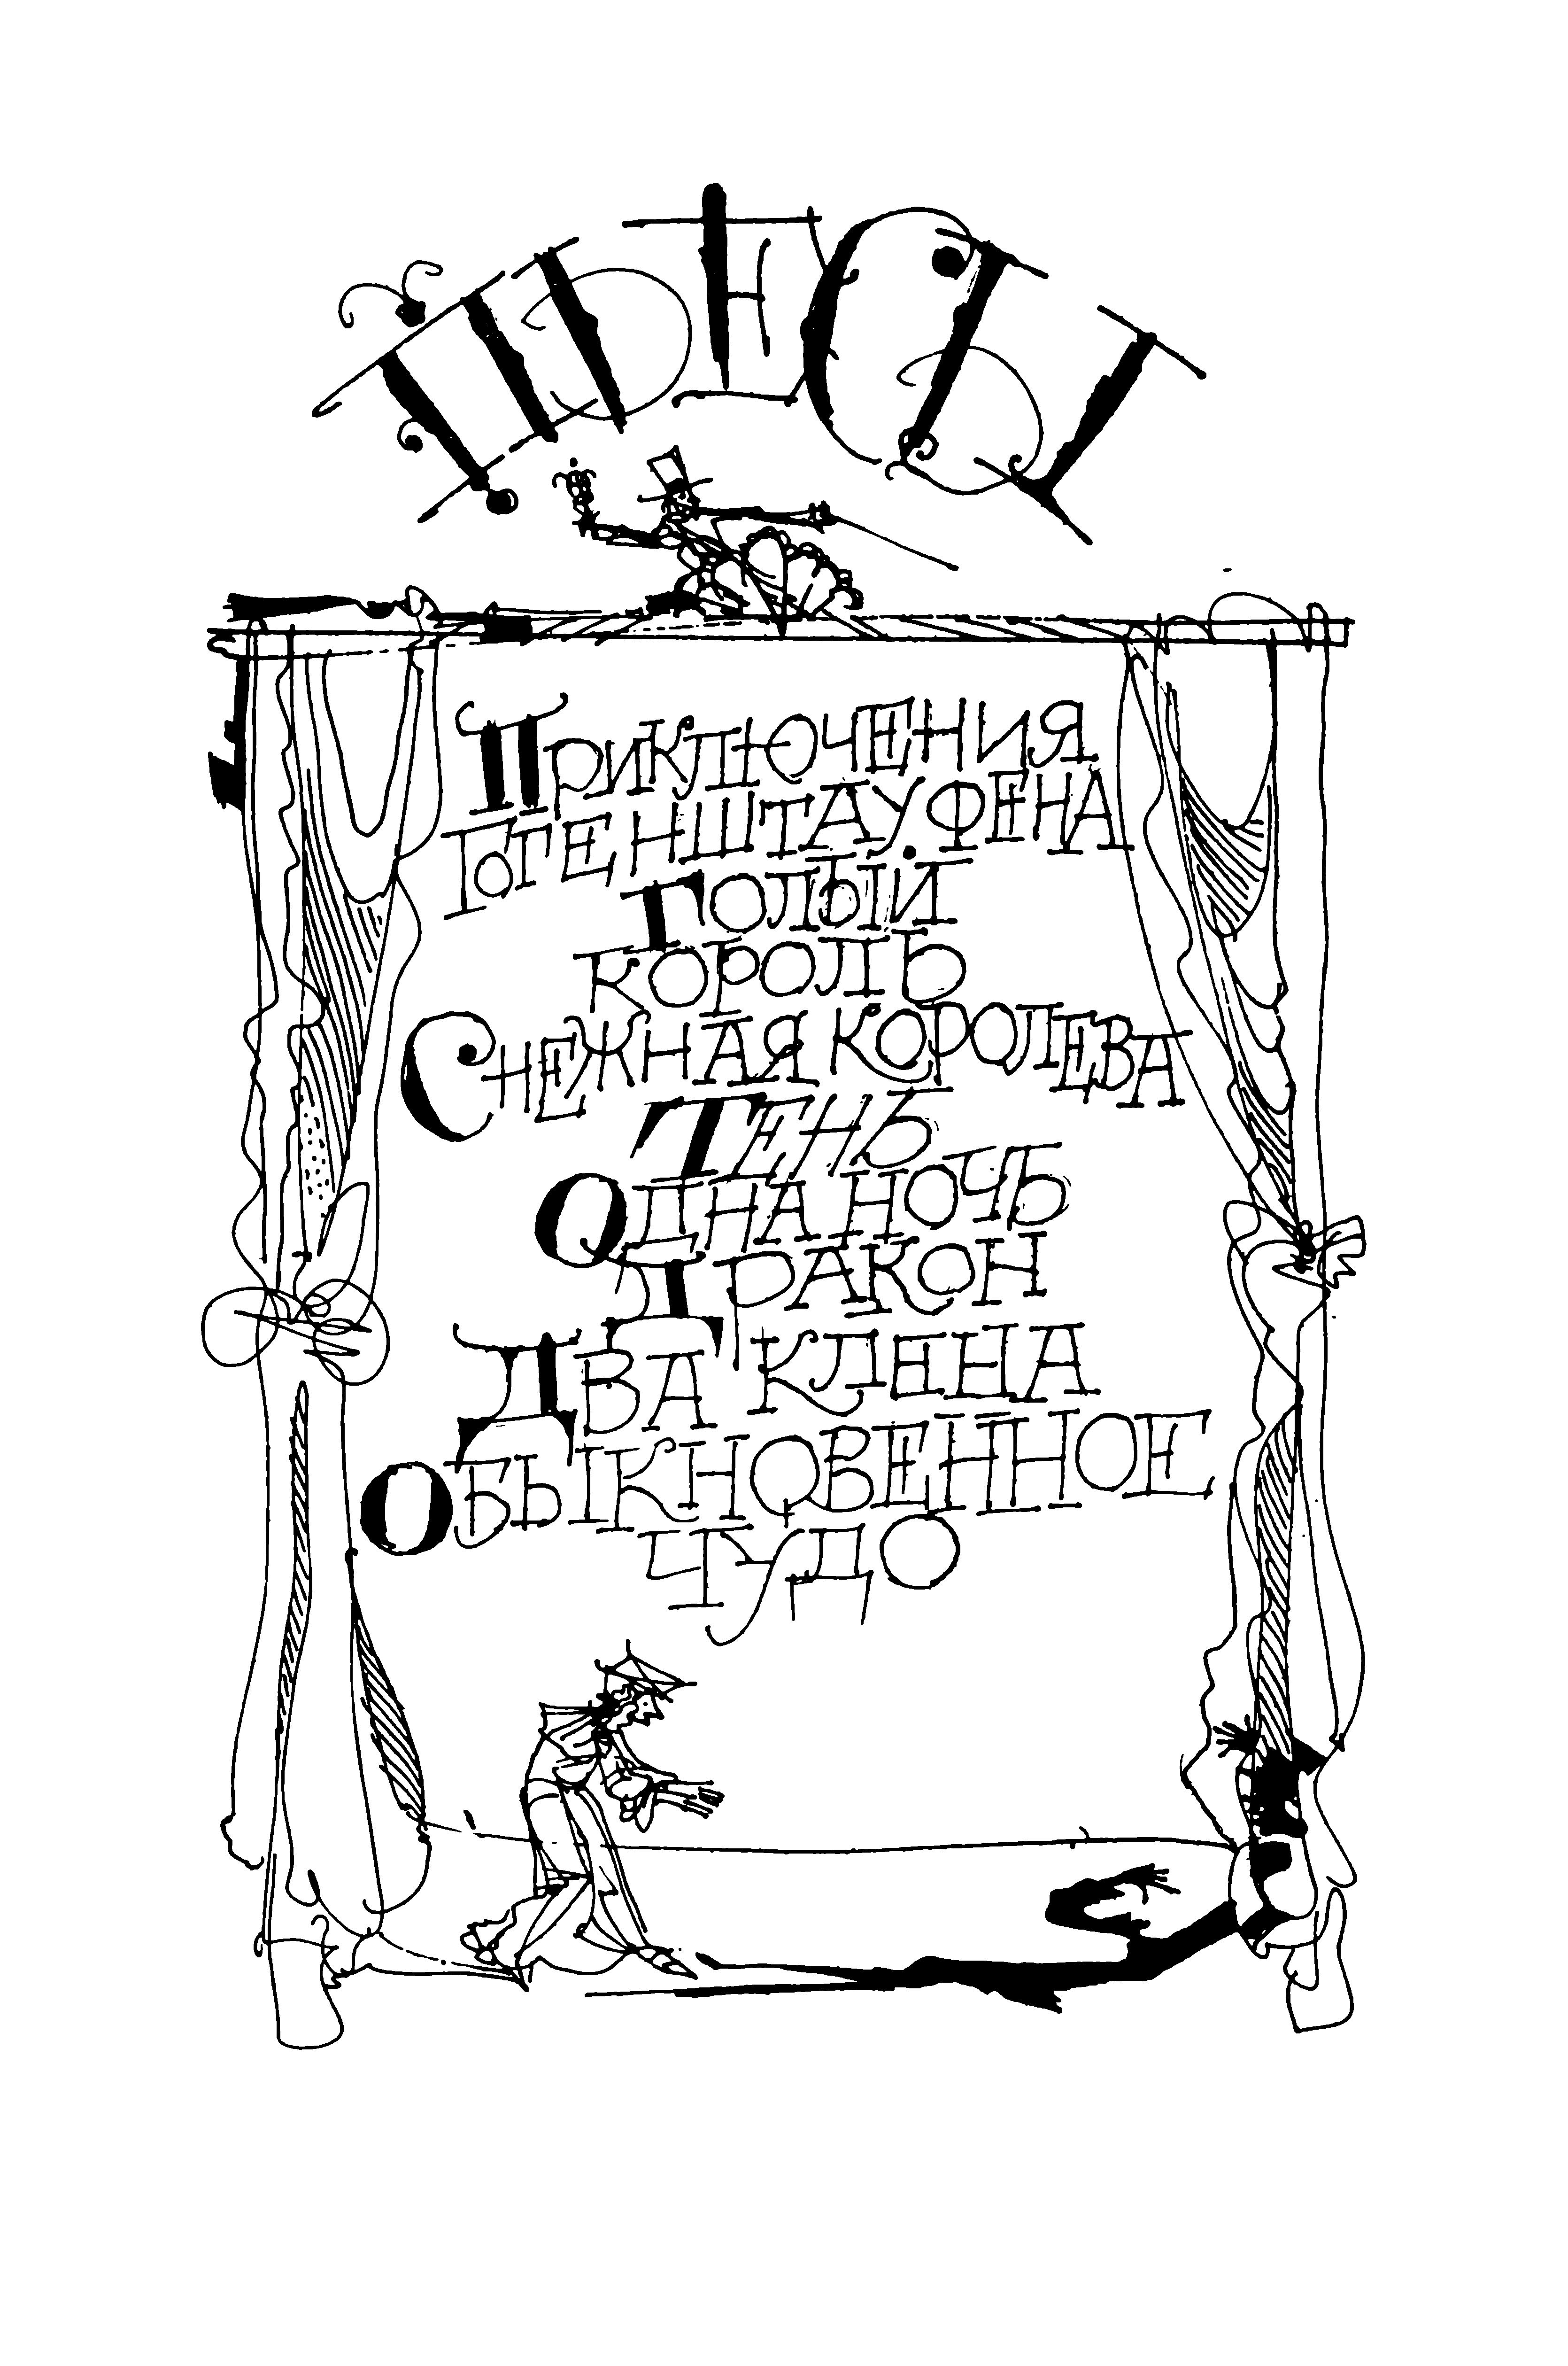 ПЬЕСЫ
ПРИКЛЮЧЕНИЯ
ГОГЕНШТАУФЕНА
ГОЛЫЙ
КОРОЛЬ
СНЕЖНАЯ КОРОЛЕВА
ТЕНЬ
ОДНА НОЧЬ
ДРАКОН
ДВА КЛЕНА
ОБЫКНОВЕННОЕ
ЧУДО